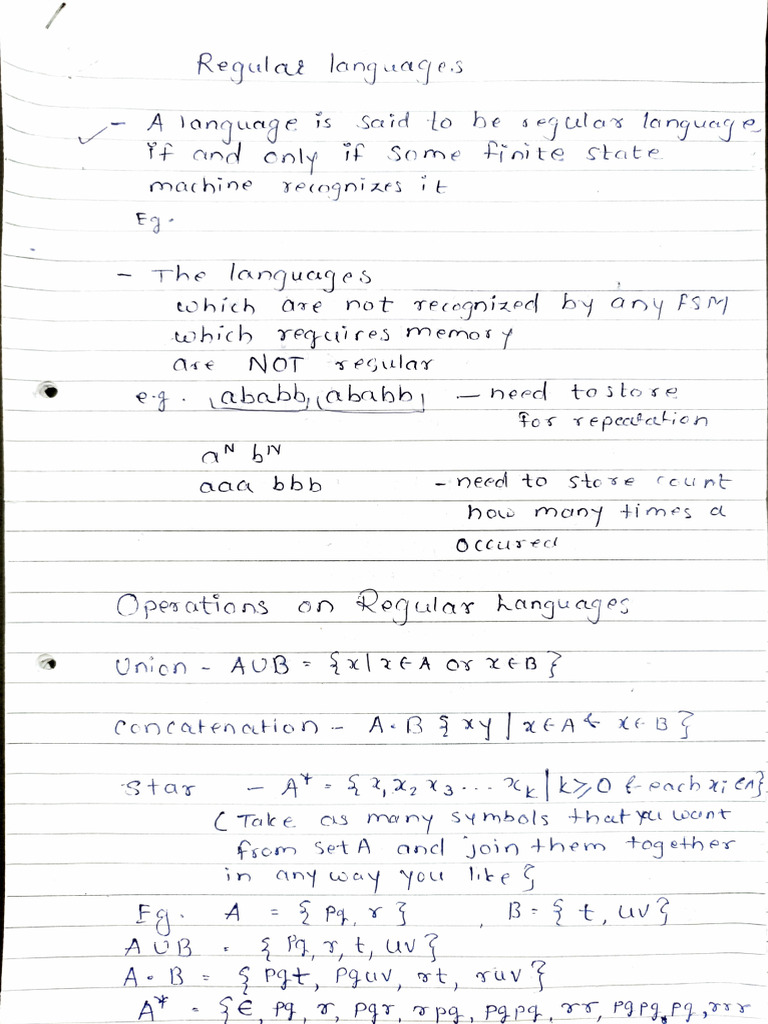 Regular languages
- A language is said to be regular language
if and only if some finite state
machine recognizes it
Eg.
- The languages
which are not recognized by any FSM
which requires memory
are NOT regular
e.g. ababb, ababb, - need to store
for repeatation
aᴺ bᴺ
aaa bbb - need to store count
how many times a
occured
Operations on Regular Languages
Union - A∪B = {x | x ∈ A or x ∈ B}
Concatenation - A·B {xy | x ∈ A & x ∈ B}
Star - A* = {x₁ x₂ x₃ ... xₖ | k ≥ 0 & each xᵢ ∈ A}
( Take as many symbols that you want
from set A and join them together
in any way you like }
Eg. A = {pq, r} , B = {t, uv}
A∪B = {pq, r, t, uv}
A·B = {pqt, pquv, rt, ruv}
A* = {ϵ, pq, r, pqr, rpq, pqpq, rr, pqpq,pq, rrr